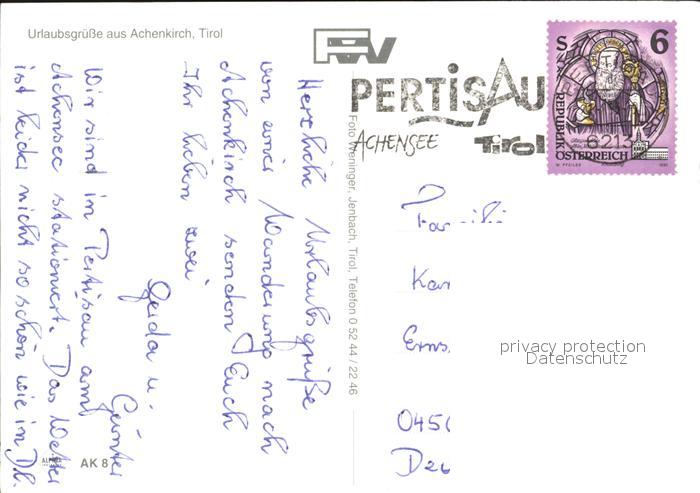 Urlaubsgrüße aus Achenkirch, Tirol
Herzliche Urlaubsgrüße
von einer Wanderung nach
Achenkirch senden Euch
Ihr lieben zwei
Gerda u.
Günter
Wir sind in Pertisau am
Achensee stationiert. Das Wetter
ist leider nicht so schön wie in Dl.
AK 8
Foto Weninger, Jenbach, Tirol, Telefon 0 52 44 / 22 46
PERTISAU
ACHENSEE TIROL
S 6
REPUBLIK
ÖSTERREICH
6213
Kar
Erns.
045
D26
privacy protection
Datenschutz